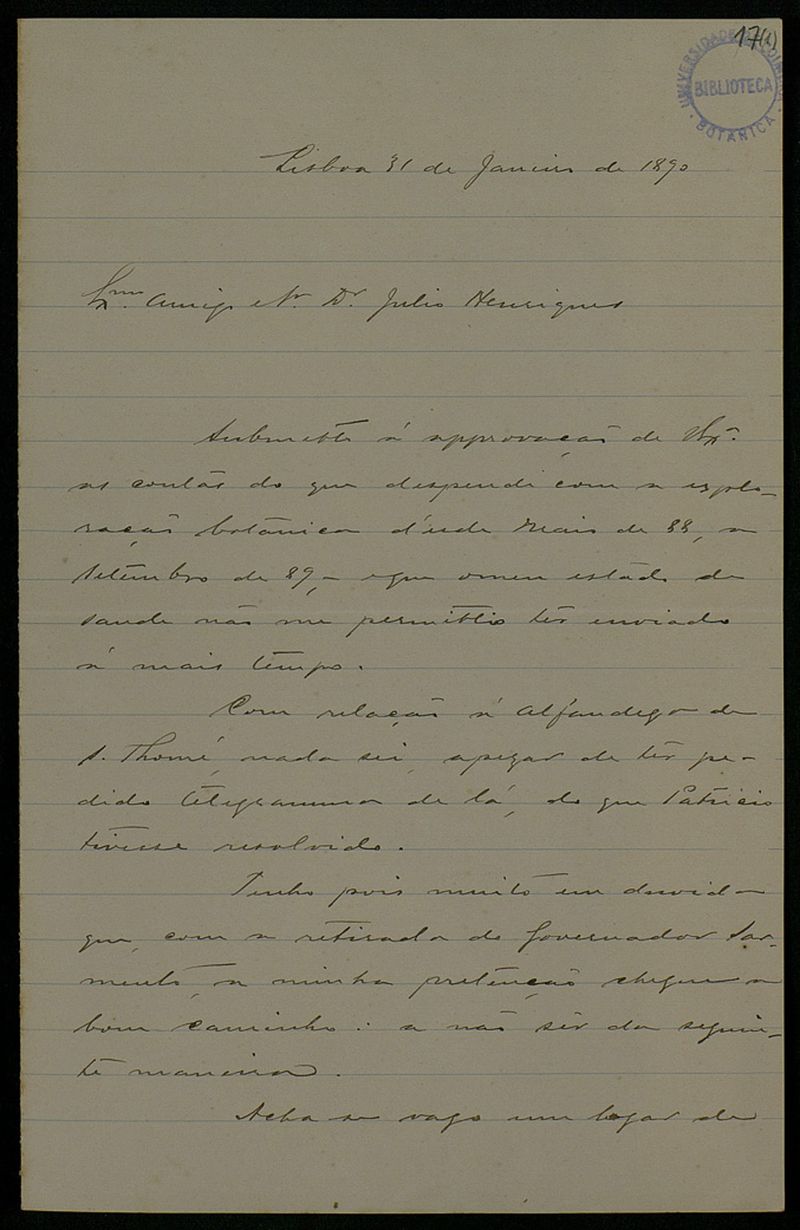 17(1)
UNIVERSIDADE DE COIMBRA
BIBLIOTECA
BOTANICA
Lisboa 31 de Janeiro de 1890
Exmo. Amigo e Sr. Dr. Julio Henriques
Submetto á approvação de VExa.
as contas do que despendi com a explo-
ração botanica d'esde Maio de 88, a
Setembro de 89, e que o meu estado de
saude não me permittio ter enviado
á mais tempo.
Com relação á Alfandega de
S. Thomé, nada sei, apezar de ter pe-
dido telegramma de lá, do que Patricio
tivesse resolvido.
Tenho pois muito em duvida
que, com a retirada do Governador Sar-
mento, a minha pretenção chegue a
bom caminho: a não ser da seguin-
te maneira.
Acha-se vago um logar de